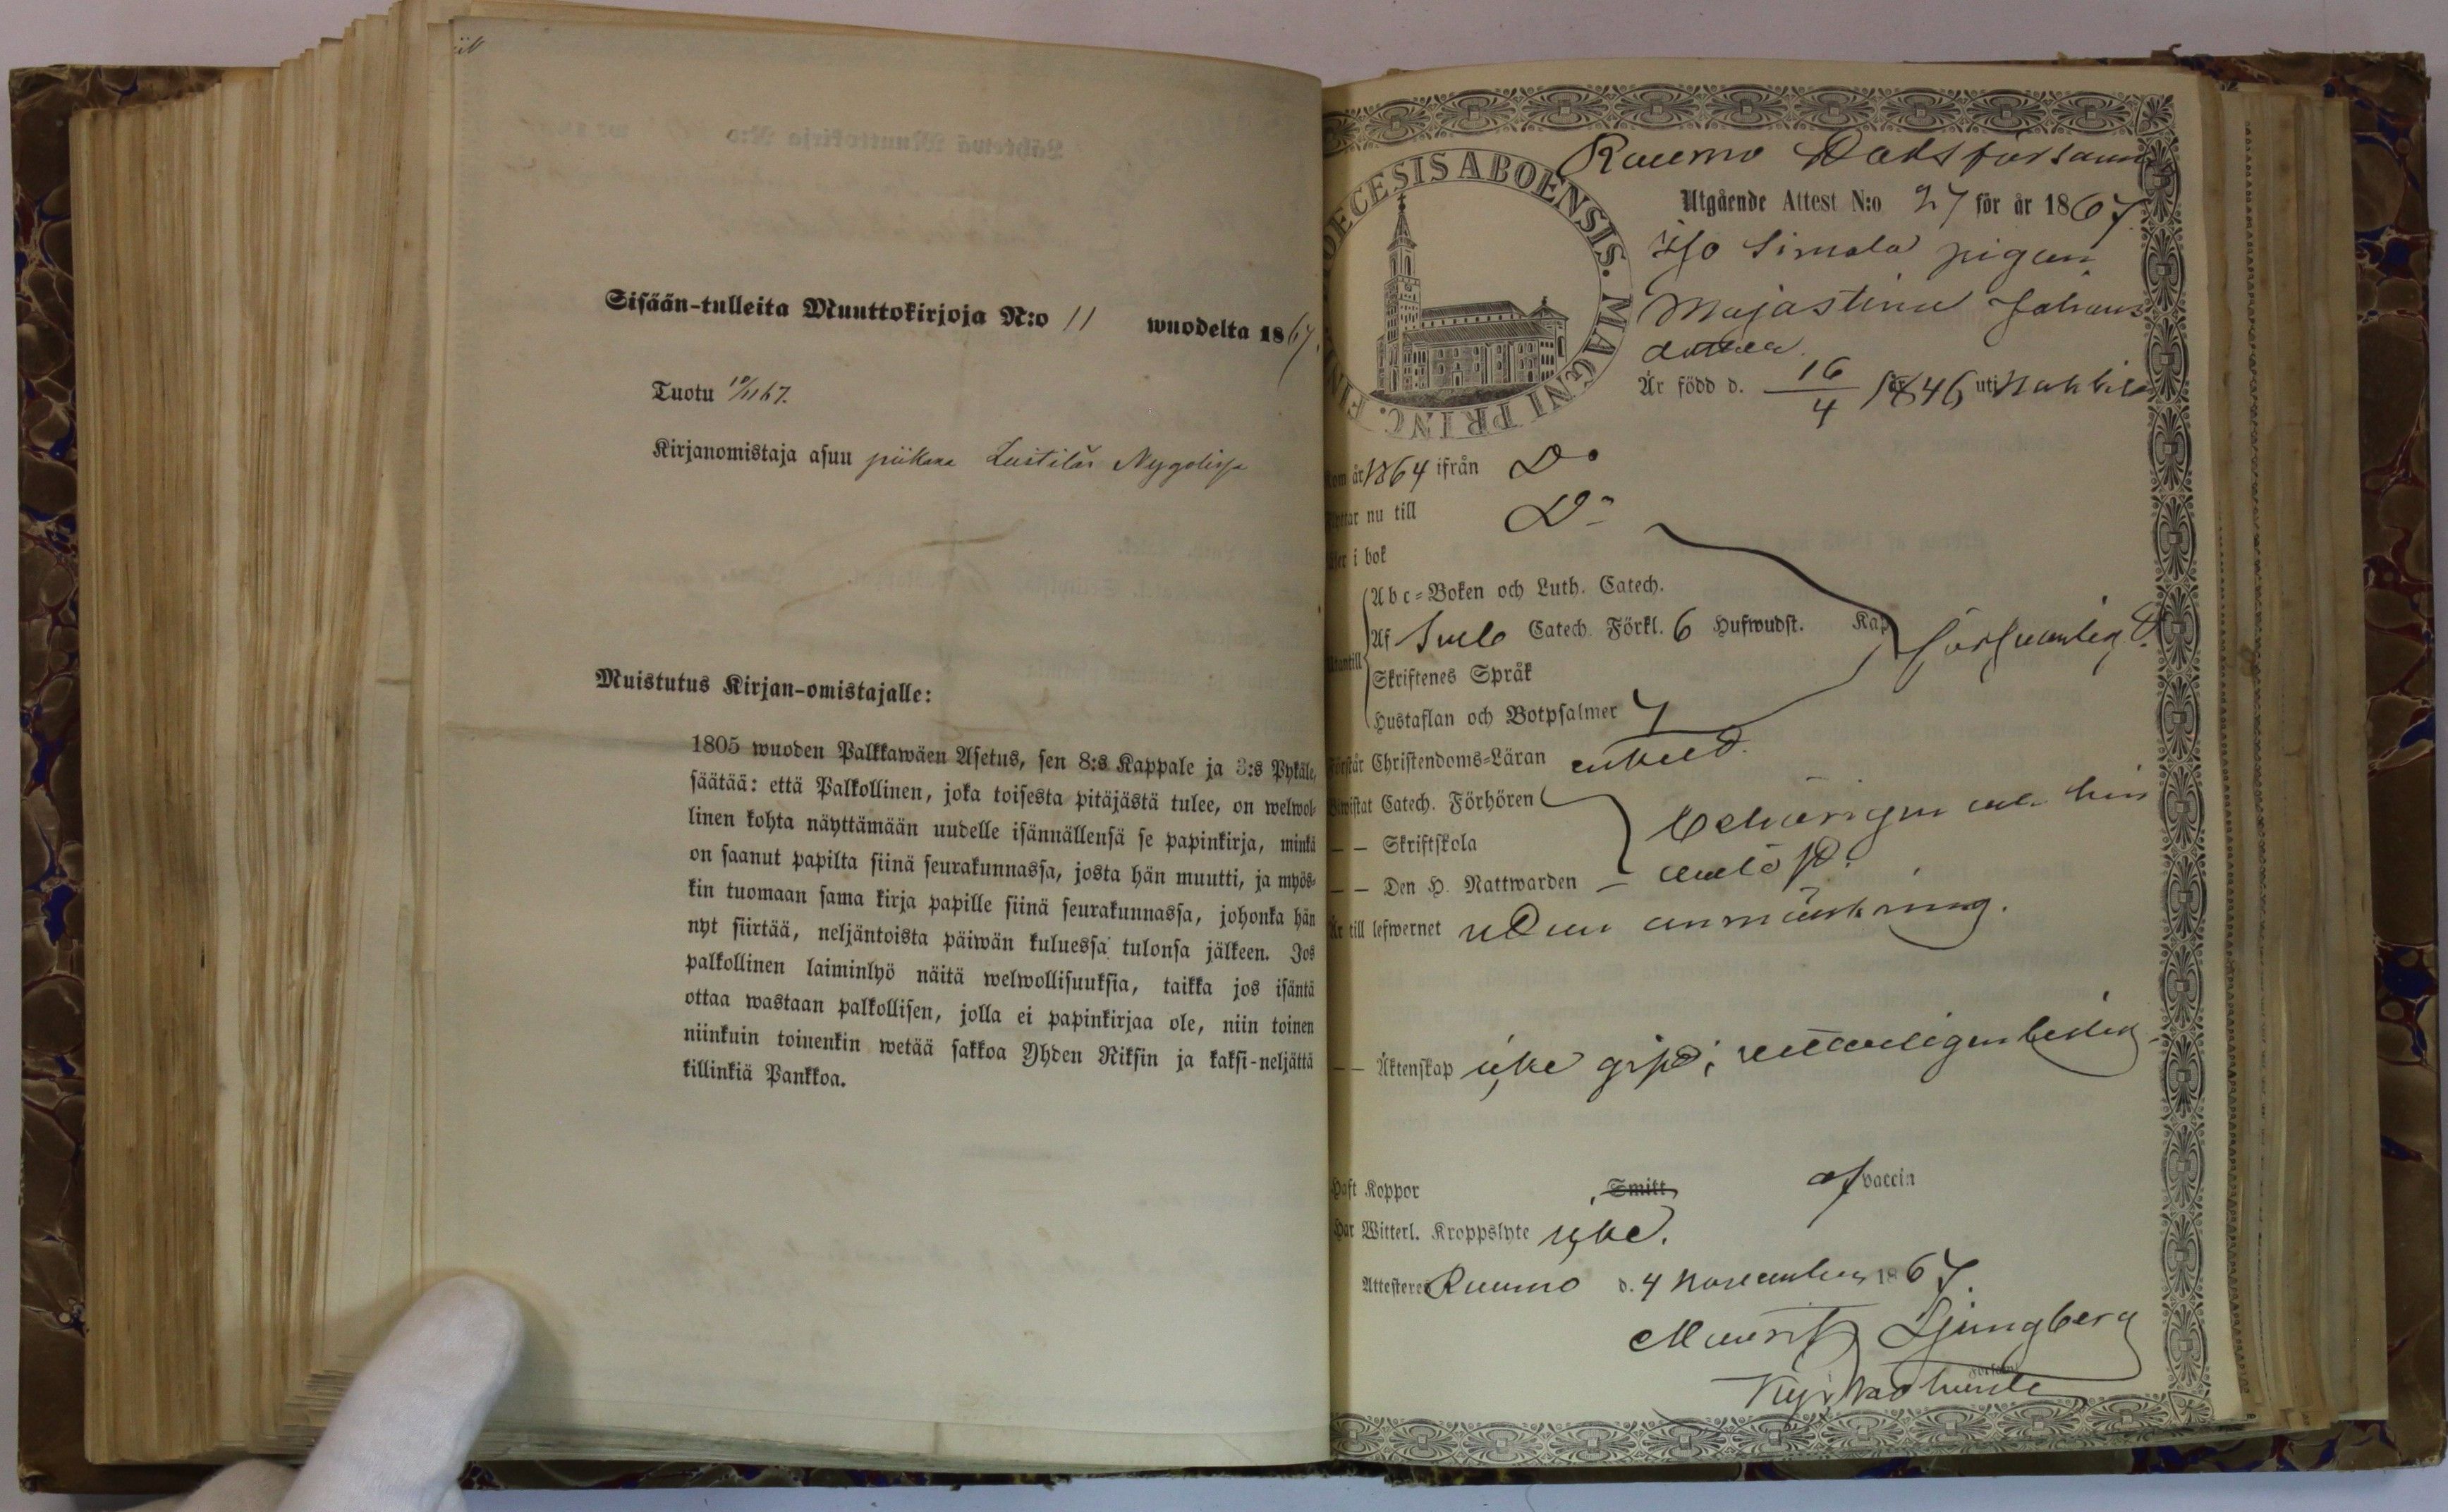 Sisään-tulleita Muuttokirjoja N:o 11 wuodelta 1867.
Tuotu 10/11 67.
Kirjanomistaja asuu piikana
Muistutus Kirjan-omistajalle:
1805 wuoden Palkkawäen Asetus, sen 8:s Kappale ja 3:s Pykäle,
säätää: että Palkollinen, joka toisesta pitäjästä tulee, on welwol-
linen kohta näyttämään uudelle isännällensä se papinkirja, minkä
on saanut papilta siinä seurakunnassa, josta hän muutti, ja myös-
kin tuomaan sama kirja papille siinä seurakunnassa, johonka hän
nyt siirtää, neljäntoista päiwän kuluessa tulonsa jälkeen. Jos
palkollinen laiminlyö näitä welwollisuuksia, taikka jos isäntä
ottaa wastaan palkollisen, jolla ei papinkirjaa ole, niin toinen
niinkuin toinenkin wetää sakkoa Yhden Riksin ja kaksi-neljättä
killinkiä Pankkoa.
DIOECESIS ABOENSIS. MAGNI PRINC. FINL.
Raumo Stadsförsaml
Utgående Attest N:o 27 för år 1867.
pigan
Majastina Johans
dotter.
Är född d. 16/4 1846 uti Nakkila
Kom år 1864 ifrån Do
Flyttar nu till Do
Läser i bok
Abc-Boken och Luth. Catech.
Utantill
Af Sveb Catech. Förkl. 6 Hufwudst. Kap
försvarligt.
Skriftenes Språk
Hustaflan och Botpsalmer 7
Förstår Christendoms-Läran enkelt.
Bewistat Catech. Förhören
— — Skriftskola
— — Den H. Nattwarden
Är till lefwernet utan anmärkning.
— — Äktenskap icke gift;
Haft Koppor Smitt af vaccin
Har Witterl. Kroppslyte icke.
Attesteres Raumo d. 4 November 1867.
Mauritz Ljungberg